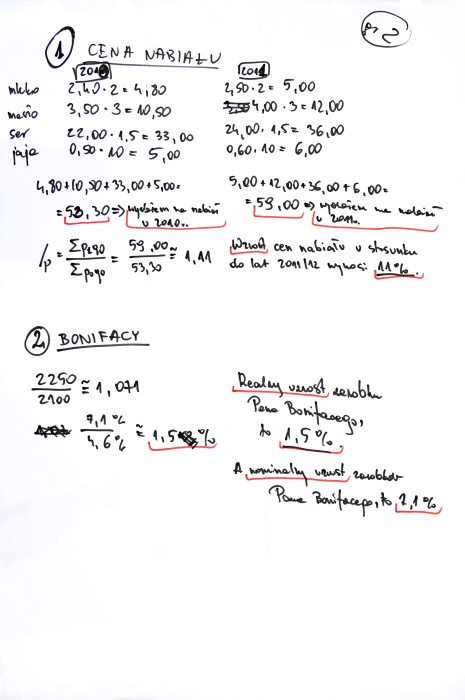 ① CENA NABIAŁU
2010 2011
mleko 2,40 · 2 = 4,80 2,50 · 2 = 5,00
masło 3,50 · 3 = 10,50 4,00 · 3 = 12,00
ser 22,00 · 1,5 = 33,00 24,00 · 1,5 = 36,00
jaja 0,50 · 10 = 5,00 0,60 · 10 = 6,00
4,80 + 10,50 + 33,00 + 5,00 = 5,00 + 12,00 + 36,00 + 6,00 =
= 53,30 => wydałem na nabiał = 59,00 => wydałem na nabiał
w 2010r. w 2011r.
Ip = Σp₁q₀ / Σp₀q₀ = 59,00 / 53,30 ≅ 1,11
Wzrost cen nabiału w stosunku
do lat 2011/12 wynosi 11%.
② BONIFACY
2250 / 2100 ≅ 1,071
7,1% / 4,6% ≅ 1,5%
Realny wzrost zarobku
Pana Bonifacego,
to 1,5%.
A nominalny wzrost zarobków
Pana Bonifacego, to 7,1%